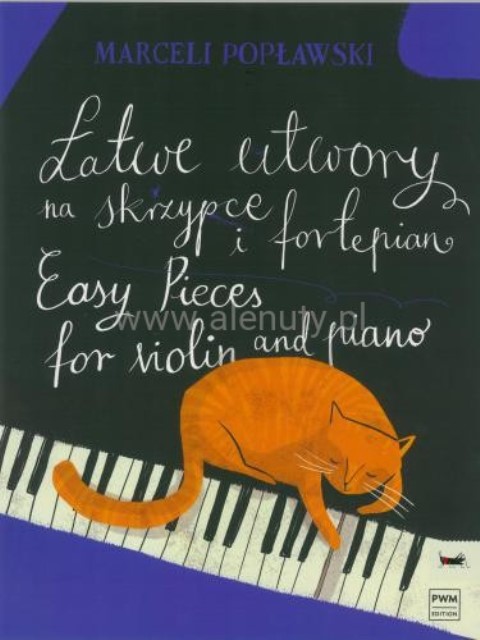 MARCELI POPŁAWSKI
Łatwe utwory
na skrzypce
i fortepian
Easy Pieces
www.alenuty.pl
for violin and piano
PWM
EDITION